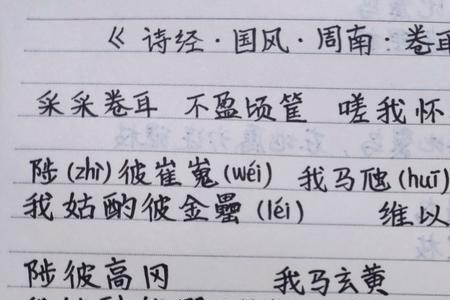 《诗经·国风·周南·卷耳
采采卷耳 不盈顷筐 嗟我怀
陟(zhì)彼崔嵬(wéi) 我马虺(huī)
我姑酌彼金罍(léi) 维以
陟彼高冈 我马玄黄